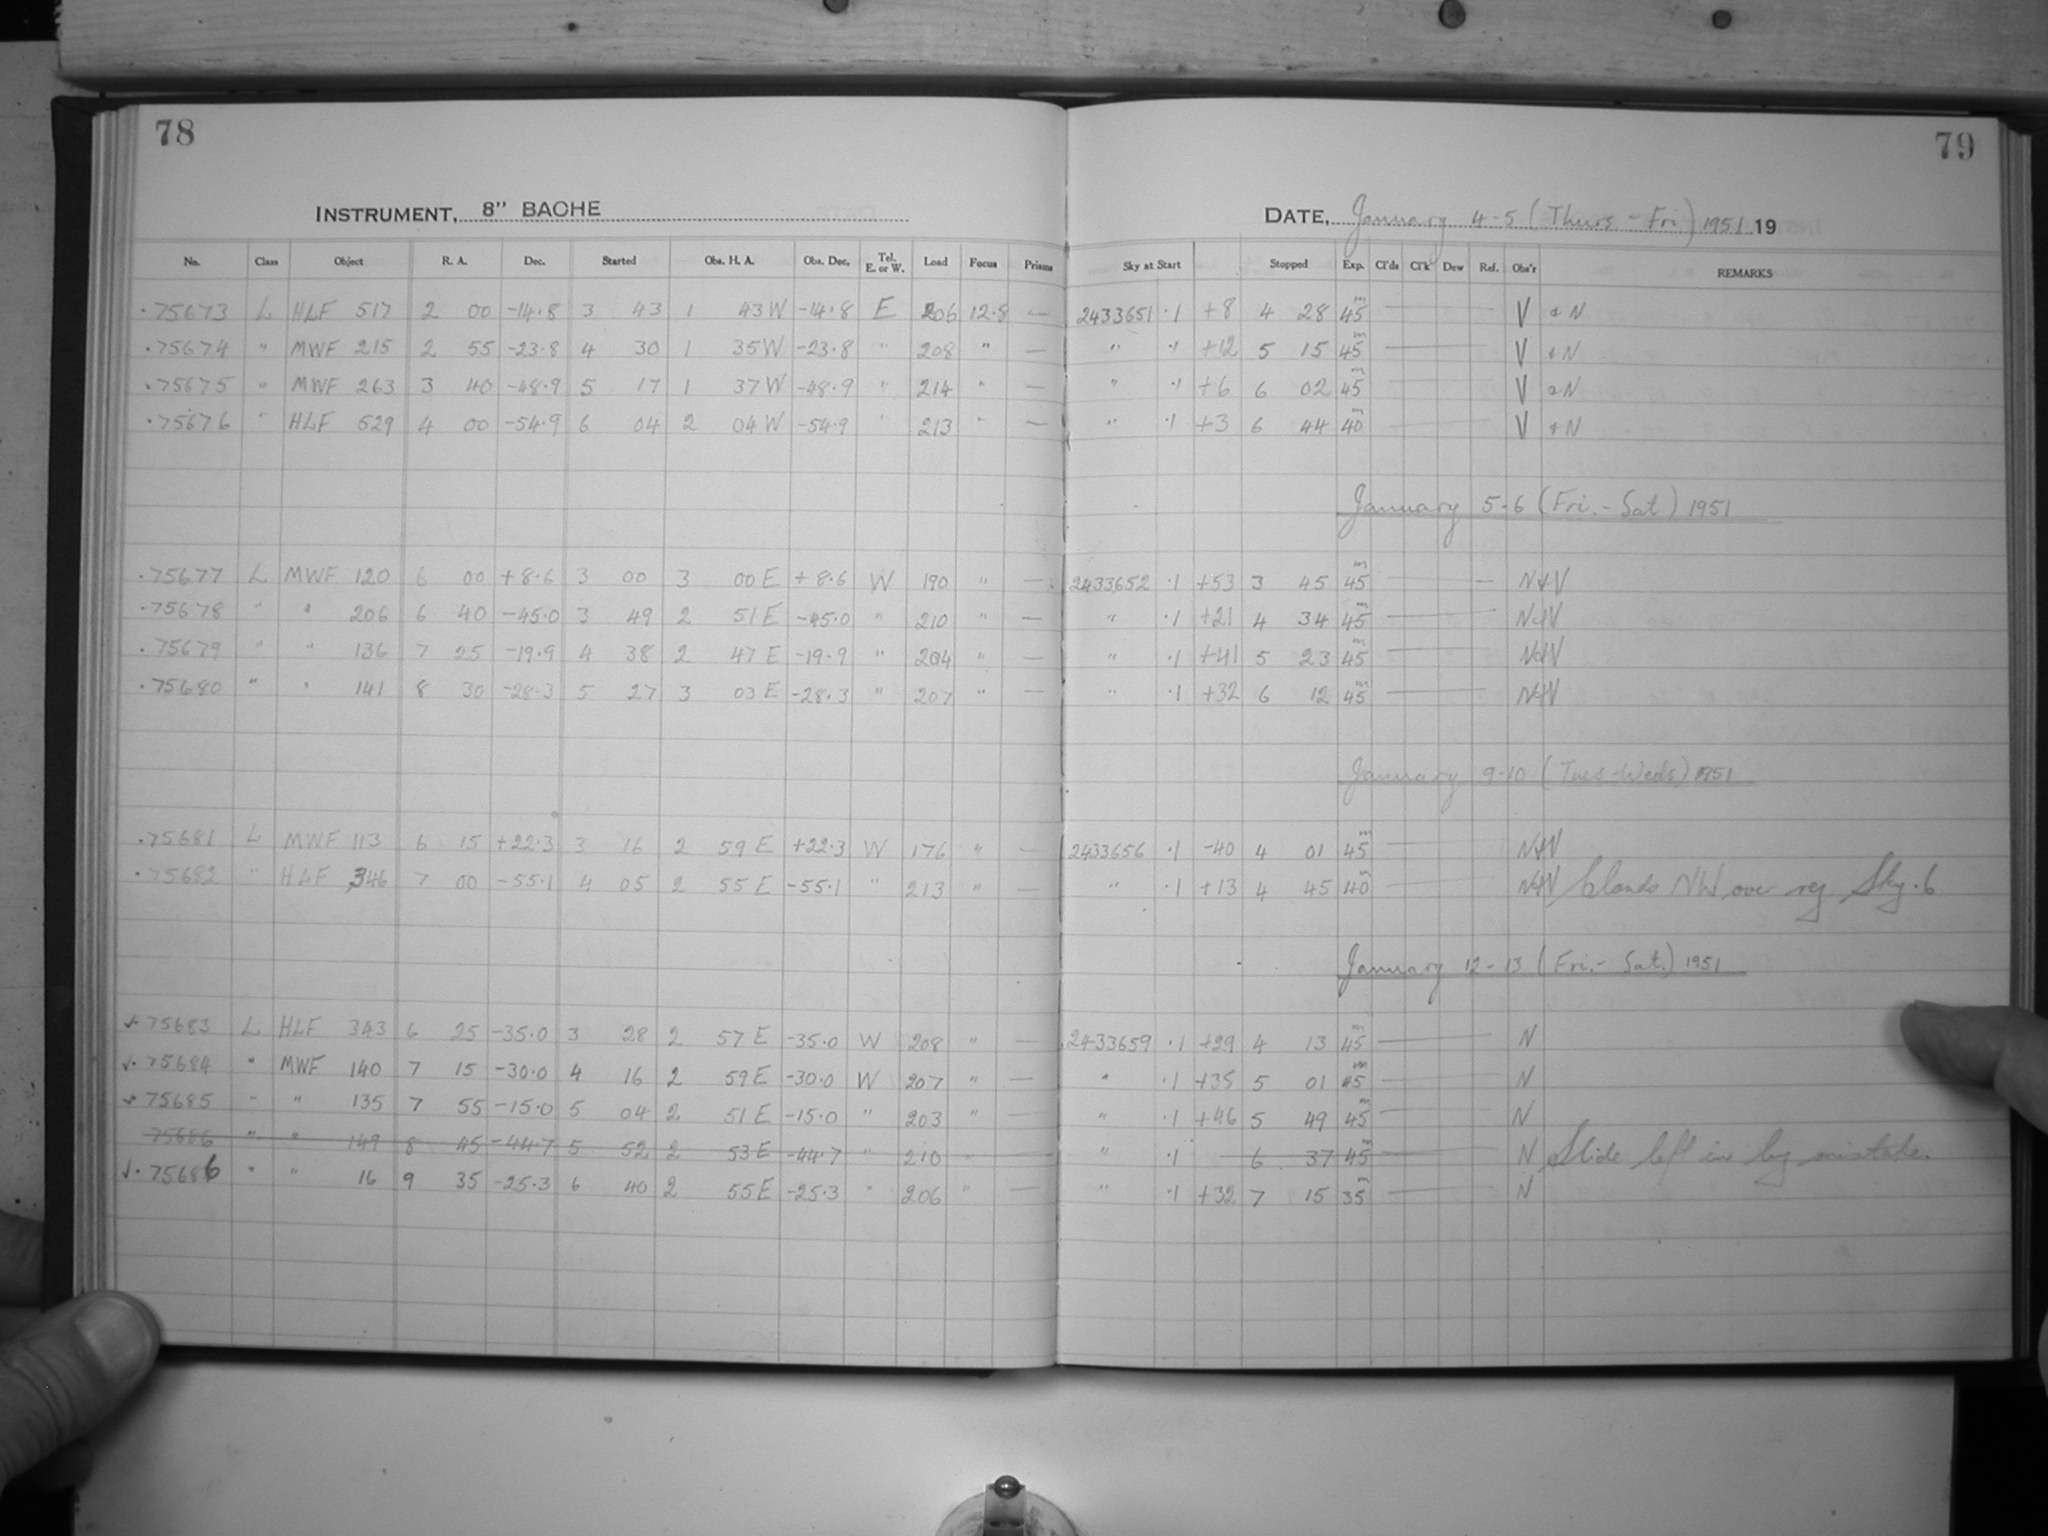 78
79
INSTRUMENT, 8" BACHE
DATE, January 4-5 (Thurs - Fri) 1951 19
No. Class Object R. A. Dec. Started Obs. H. A. Obs. Dec. Tel. E. or W. Load Focus Prisms Sky at Start Stopped Exp. Cl'ds Cl'k Dew Ref. Obs'r REMARKS
.75673 L HLF 517 2 00 -14.8 3 43 1 43 W -14.8 E 206 12.8 — 2433651 .1 +8 4 28 45m V & N
.75674 " MWF 215 2 55 -23.8 4 30 1 35 W -23.8 " 208 " — " .1 +12 5 15 45m V & N
.75675 " MWF 263 3 40 -48.9 5 17 1 37 W -48.9 " 214 " — " .1 +6 6 02 45m V & N
.75676 " HLF 529 4 00 -54.9 6 04 2 04 W -54.9 " 213 " — " .1 +3 6 44 40m V & N
January 5-6 (Fri. - Sat) 1951
.75677 L MWF 120 6 00 +8.6 3 00 3 00 E +8.6 W 190 " — 2433652 .1 +53 3 45 45m N & V
.75678 " " 206 6 40 -45.0 3 49 2 51 E -45.0 " 210 " — " .1 +21 4 34 45m N & V
.75679 " " 136 7 25 -19.9 4 38 2 47 E -19.9 " 204 " — " .1 +41 5 23 45m N & V
.75680 " " 141 8 30 -28.3 5 27 3 03 E -28.3 " 207 " — " .1 +32 6 12 45m N & V
January 9-10 (Tues-Weds) 1951
.75681 L MWF 113 6 15 +22.3 3 16 2 59 E +22.3 W 176 " — 2433656 .1 -40 4 01 45m N & V
.75682 " HLF 346 7 00 -55.1 4 05 2 55 E -55.1 " 213 " — " .1 +13 4 45 40m N & V Clouds NW over reg Sky .6
January 12-13 (Fri. - Sat.) 1951
✓.75683 L HLF 343 6 25 -35.0 3 28 2 57 E -35.0 W 208 " — 2433659 .1 +29 4 13 45m N
✓.75684 " MWF 140 7 15 -30.0 4 16 2 59 E -30.0 W 207 " — " .1 +35 5 01 45m N
✓.75685 " " 135 7 55 -15.0 5 04 2 51 E -15.0 " 203 " — " .1 +46 5 49 45m N
75686 " " 149 8 45 -44.7 5 52 2 53 E -44.7 " 210 " — " .1 6 37 45m N Slide left in by mistake.
✓.75686 " " 16 9 35 -25.3 6 40 2 55 E -25.3 " 206 " — " .1 +32 7 15 35m N